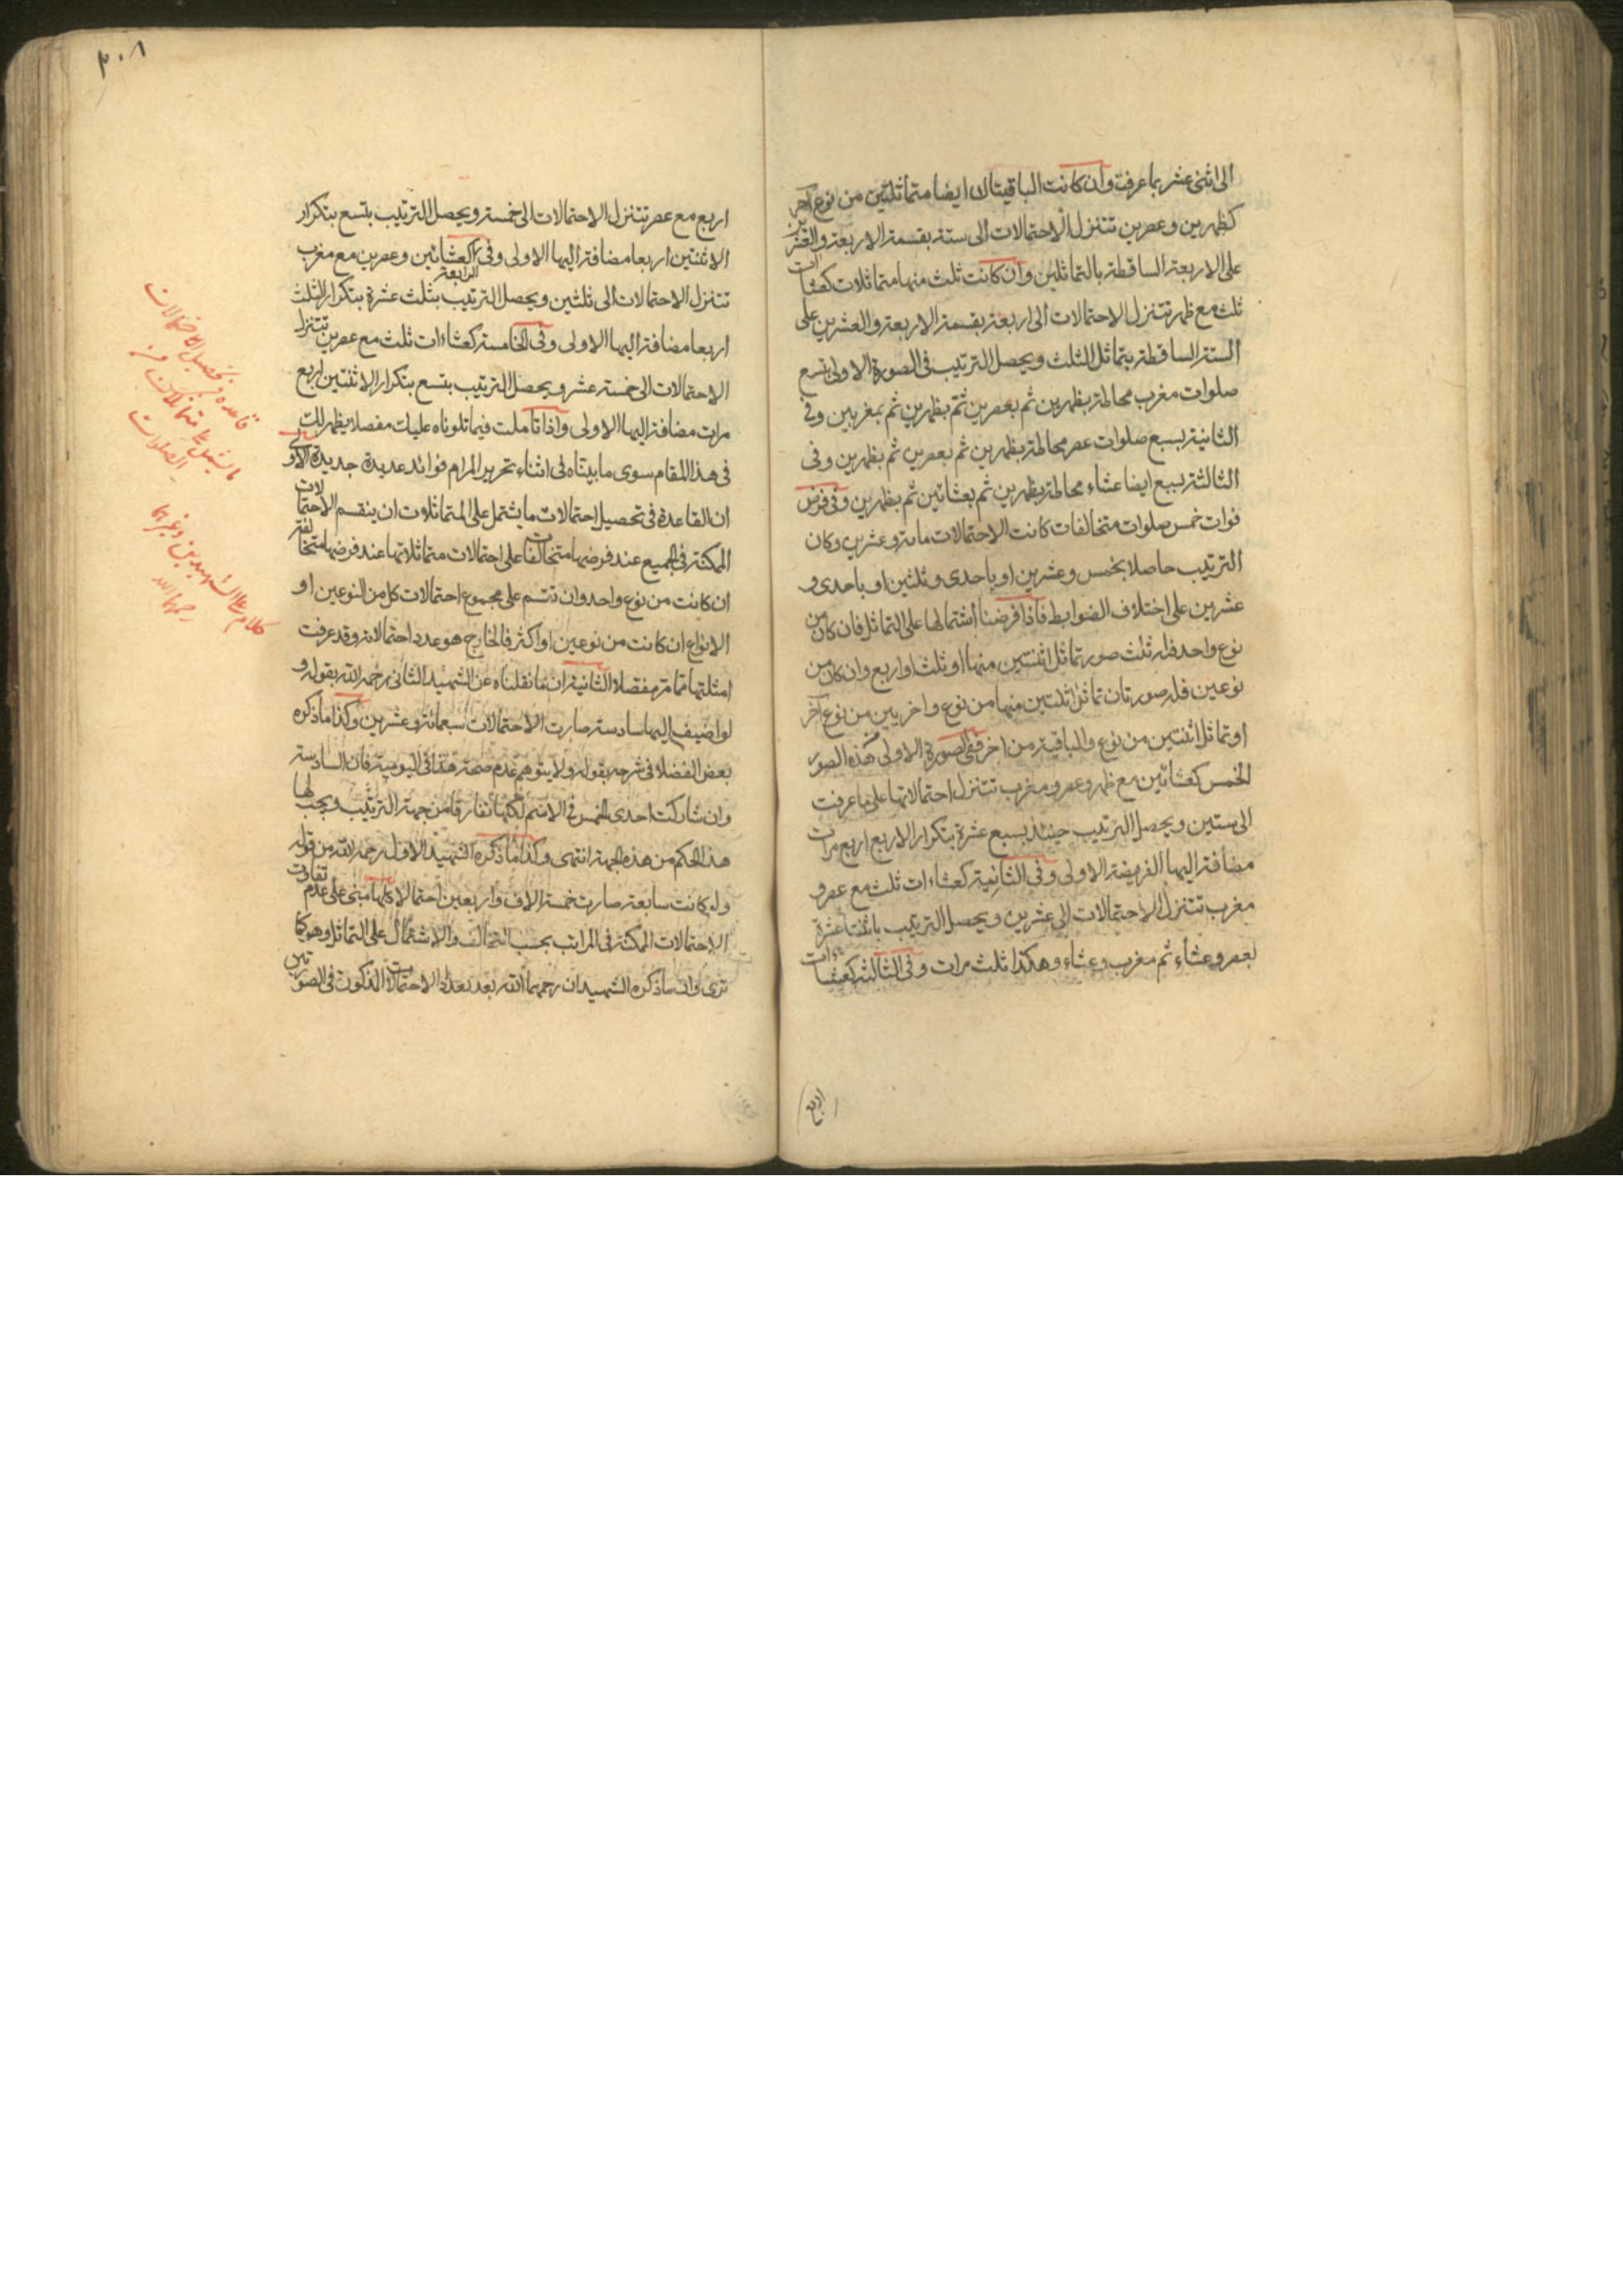 الى اثنى عشر بما عرفت وان كانت الباقيتان ايضا متماثلتين من نوع آخر
كظهرين وعصرين تتنزل الاحتمالات الى ستة بقسمة الاربعة والعشرين
على الاربعة الساقطة بالتماثلين وان كانت ثلث منها متماثلات كعشاءات
ثلث مع ظهر تتنزل الاحتمالات الى اربعة بقسمة الاربعة والعشرين على
الستة الساقطة بتماثل الثلث ويحصل الترتيب فى الصورة الاولى بتسع
صلوات مغرب محاطة بظهرين ثم بعصرين ثم بظهرين ثم بمغربين وفى
الثانية بسبع صلوات عصر محاطة بظهرين ثم بعصرين ثم بظهرين وفى
الثالثة بسبع ايضا عشاء محاطة بظهرين ثم بعشائين ثم بظهرين وفى فرض
فوات خمس صلوات متخالفات كانت الاحتمالات مائة وعشرين وكان
الترتيب حاصلا بخمس وعشرين او باحدى وثلثين او باحدى و
عشرين على اختلاف الضوابط فاذا فرضنا اشتمالها على التماثل فان كان من
نوع واحد فله ثلث صور تماثل اثنتين منها او ثلث او اربع وان كان من
نوعين فله صورتان تماثل اثنتين منها من نوع واخريين من نوع آخر
او تماثل اثنتين من نوع والباقية من اخر ففى الصورة الاولى من هذه الصور
الخمس كعشائين مع ظهر وعصر ومغرب تتنزل احتمالاتها على ما عرفت
الى ستين ويحصل الترتيب حينئذ بسبع عشرة بتكرار الاربع اربع مرات
مضافة اليها الفريضة الاولى وفى الثانية كعشاءات ثلث مع عصر و
مغرب تتنزل الاحتمالات الى عشرين ويحصل الترتيب باثنتا عشرة
بعصر وعشاء ثم مغرب وعشاء وهكذا ثلث مرات وفى الثالثة كعشاءات
اربع
٣٠٨
اربع مع عصر تتنزل الاحتمالات الى خمسة ويحصل الترتيب بتسع بتكرار
الاثنتين اربعا مضافة اليها الاولى وفى الرابعة كعشائين وعصرين مع مغرب
تتنزل الاحتمالات الى ثلثين ويحصل الترتيب بثلث عشرة بتكرار الثلث
اربعا مضافة اليها الاولى وفى الخامسة كعشاءات ثلث مع عصرين تتنزل
الاحتمالات الى خمسة عشر ويحصل الترتيب بتسع بتكرار الاثنتين اربع
مرات مضافة اليها الاولى واذا تأملت فيما تلوناه عليك مفصلا يظهر لك
فى هذا المقام سوى ما بيناه فى اثناء تحرير المرام فوائد عديدة جديدة الاولى
ان القاعدة فى تحصيل احتمالات ما يشتمل على المتماثلات ان ينقسم الاحتمالات
الممكنة فى الجميع عند فرضها متخالفات على احتمالات متماثلاتها عند فرضها متخالفة
ان كانت من نوع واحد وان تقسم على مجموع احتمالات كل من النوعين او
الانواع ان كانت من نوعين او اكثر فالخارج هو عدد احتمالاته وقد عرفت
امثلتها مما مر مفصلا الثانية ان ما نقلناه عن الشهيد الثانى رحمه الله بقوله و
لو اضيف اليها سادسة صارت الاحتمالات سبعمائة وعشرين وكذا ما ذكره
بعض الفضلا فى شرحه بقوله ولا يتوهم عدم صحة هذا فى اليومية فان السادسة
وان شاركت احدى الخمس فى الاسم لكنها تفارقها من جهة الترتيب ويجب لها
هذا الحكم من هذه الجهة انتهى وكذا ما ذكره الشهيد الاول رحمه الله من قوله
ولو كانت سابعة صارت خمسة الاف واربعين احتمالا كلها مبنى على عدم تفاوت
الاحتمالات الممكنة فى المراتب بحسب التخالف والاشتمال على التماثل وهو كما
ترى وان ما ذكره الشهيدان رحمهما الله بعد تعداد الاحتمالات المذكورة فى الصورتين
قاعدة فى تحصيل الاحتمالات
ما يشتمل على متماثلات من
الصلوات
كلام على الشهيدين وغيرهما
رحمهم الله